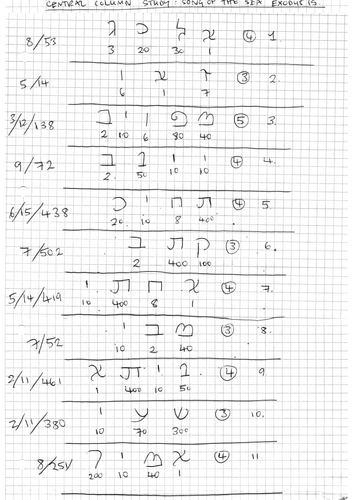 CENTRAL COLUMN STUDY: SONG OF THE SEA EXODUS 15.
8/53 א ל כ ג ④ 1.
3 20 30 1
5/14 ז א ו ③ 2.
6 1 7
3/12/138 מ פ ו י ב ⑤ 3.
2 10 6 80 40
9/72 י י נ ב ④ 4.
2. 50 10 10
6/15/438 ת ח י כ ④ 5
20. 10 8 400
7/502 ק ת ב ③ 6.
2 400 100
5/14/419 א ח ת י ④ 7.
10 400 8 1
7/52 מ ב י ③ 8.
10 2 40
2/11/461 נ י ת א ④ 9
1 400 10 50
2/11/380 ש ע י ③ 10.
10 70 300
8/251 א מ י ר ④ 11
200 10 40 1